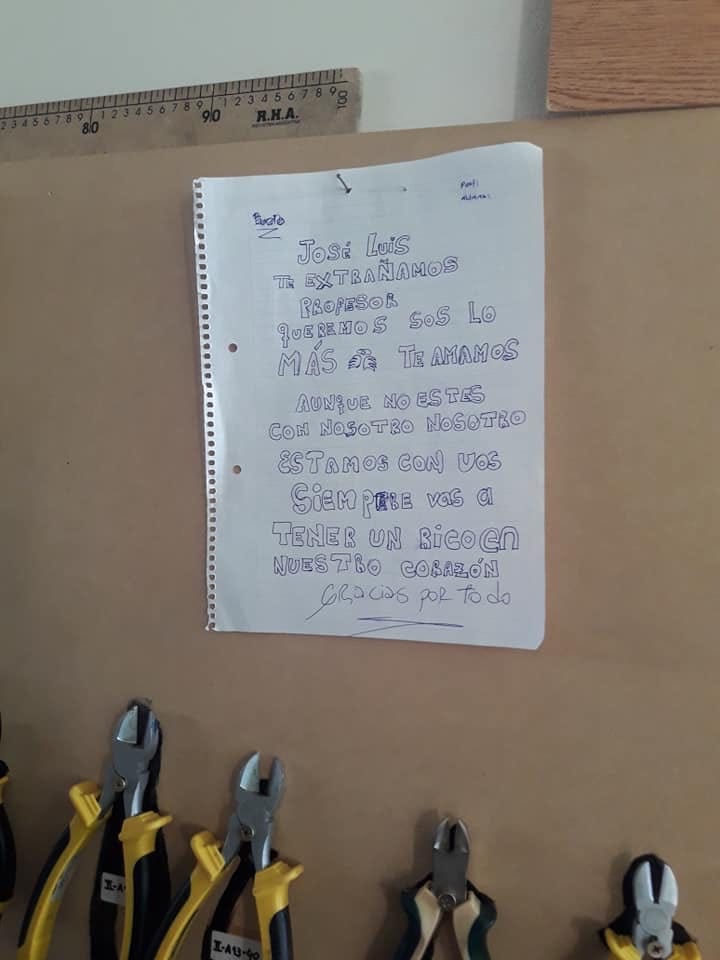 1 2 3 4 5 6 7 8 9 100
6 7 8 9 80 1 2 3 4 5 6 7 8 9 90
R.H.A.
JOSÉ LUIS
TE EXTRAÑAMOS
PROPESOR
QUEREMOS SOS LO
MÁS TE AMAMOS
AUNQUE NO ESTES
CON NOSOTRO NOSOTRO
ESTAMOS CON VOS
SIEMPERE vas a
TENER UN RICO en
NUESTRO CORAZÓN
Gracias por todo
II-A
II-A13-90